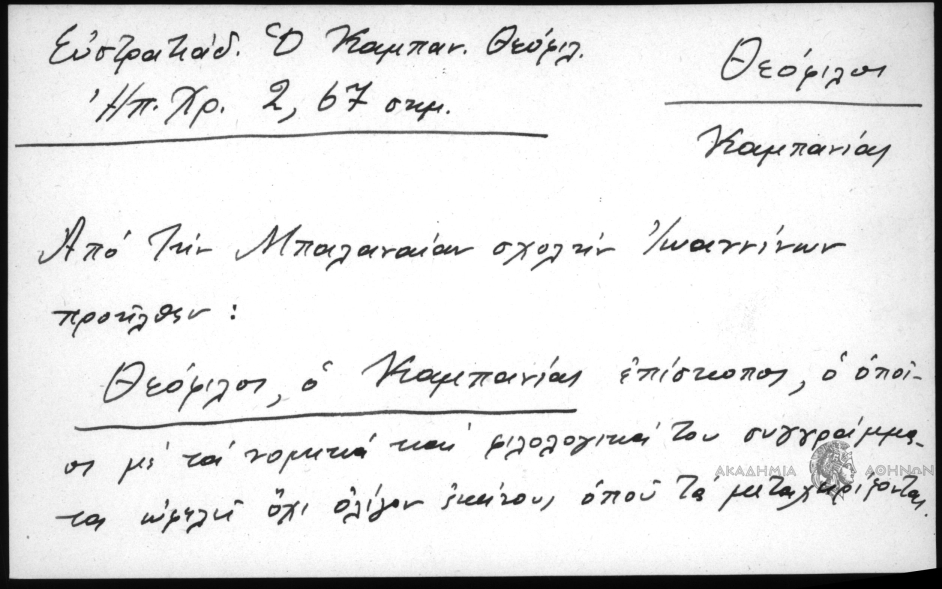 Εὐστρατιάδ. Ὁ Καμπαν. Θεόφιλ.
Ἠπ. Χρ. 2, 67 σημ.
Θεόφιλος
Καμπανίας
Ἀπό τήν Μπαλαναίαν σχολήν Ἰωαννίνων
προῆλθεν :
Θεόφιλος, ὁ Καμπανίας ἐπίσκοπος, ὁ ὁποῖ-
ος μέ τά νομικά καί φιλολογικά του συγγράμμα-
τα ὠφελεῖ ὄχι ὀλίγον ἐκείνους ὁποῦ τά μεταχειρίζονται.
ΑΚΑΔΗΜΙΑ ΑΘΗΝΩΝ